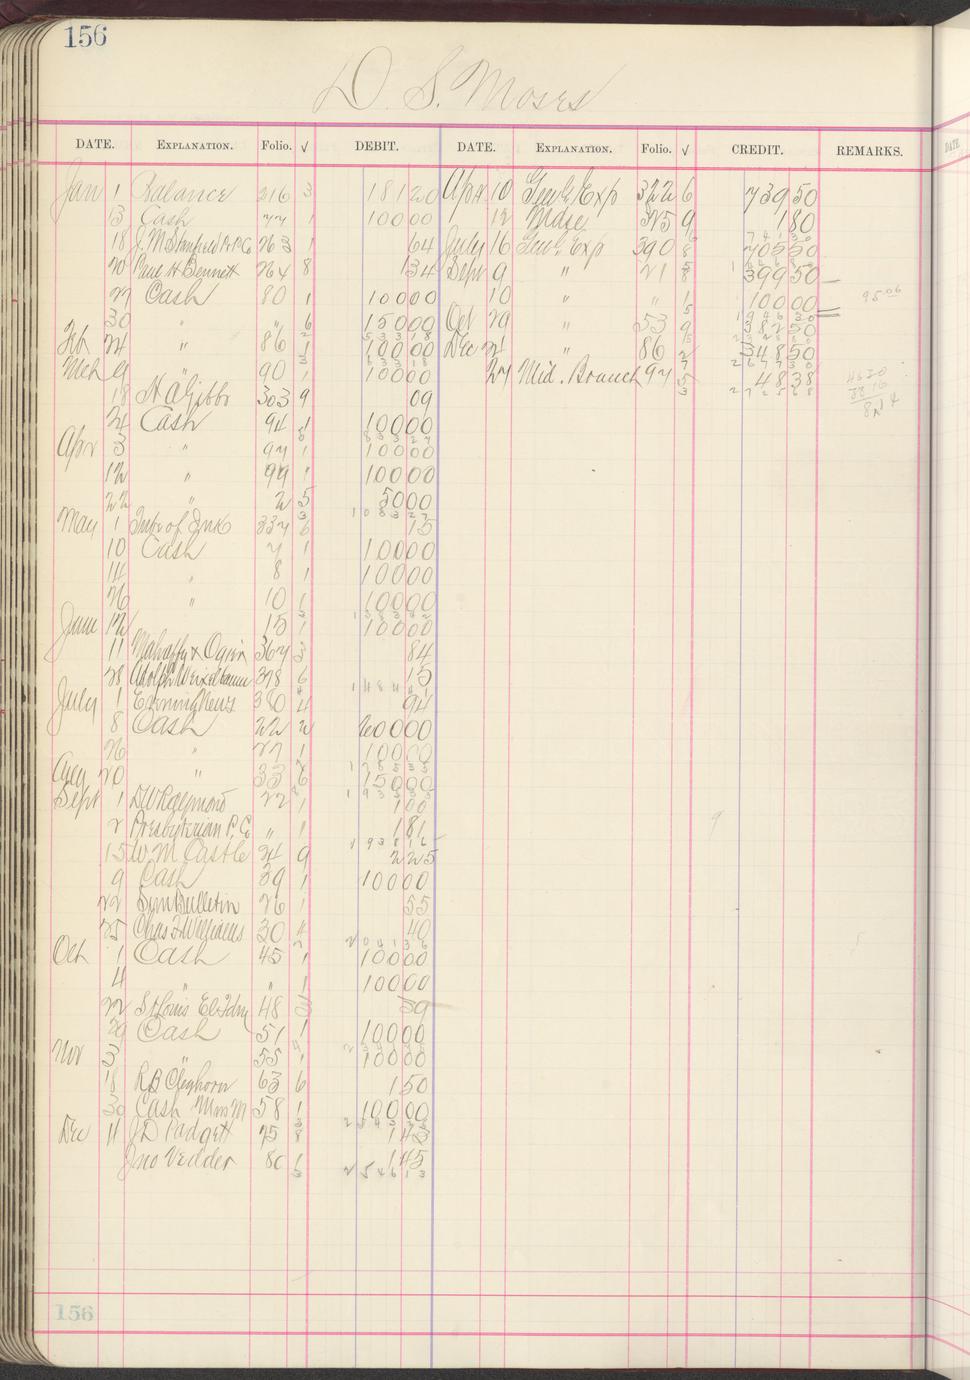 156
D. S. Moses
DATE. EXPLANATION. Folio. √ DEBIT. DATE. EXPLANATION. Folio. √ CREDIT. REMARKS.
Jan 1 Balance 216 3 181 20 Apr 10 Genl Exp 322 6 739 50
13 Cash 77 1 100 00 12 Mdse 375 9 1 80
18 263 1 64 July 16 Genl Exp 390 8 705 50
20 Paul H Bennett 264 8 1 34 Sept 9 " 21 399 50
27 Cash 80 1 100 00 10 " " 1 100 00 95 06
30 " " 6 150 00 Oct 29 " 53 9 382 50
Feb 24 " 86 1 100 00 Dec 24 " 86 2 348 50
Mch 9 90 1 100 00 27 Mid. Branch 97 5 48 38
18 303 9 09
24 Cash 94 1 100 00
Apr 3 " 97 1 100 00
12 " 99 1 100 00
22 " 2 5 50 00
May 1 337 6 15
10 Cash 7 1 100 00
14 " 8 1 100 00
26 " 10 1 100 00
June 12 15 1 100 00
11 Mahaffy & 367 3 84
28 Adolph Weixelbaum 378 6 15
July 1 Evening News 380 4 94
8 Cash 22 2 200 00
26 " 27 1 100 00
Aug 20 " 33 6 150 00
Sept 1 D W Raymond 22 1 1 00
2 Presbyterian P. Co " 1 1 81
15 W M Castle 24 9 2 25
9 Cash 39 1 100 00
22 Sun Bulletin 26 1 55
25 Chas F Williams 30 4 40
Oct 1 Cash 45 1 100 00
4 " " 1 100 00
22 St Louis 48 3 39
29 Cash 51 1 100 00
Nov 3 " 55 1 100 00
18 R B Cleghorn 63 6 1 50
30 Cash Mrs M 58 1 100 00
Dec 11 J D Padgett 75 8 1 43
Jno Vedder 80 1 1 45
2 5 4 6 1 3
156